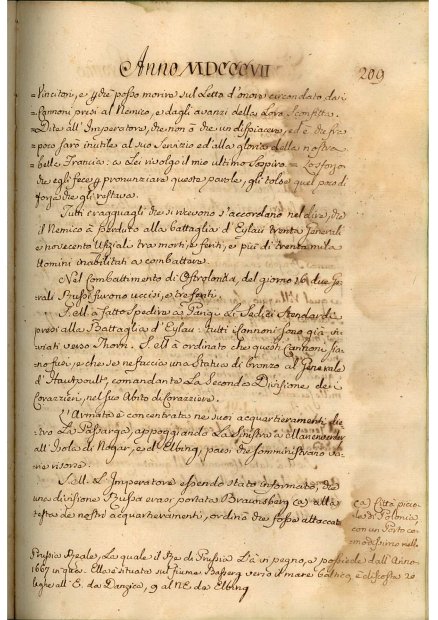 Anno MDCCCVII
209
=Vincitori, e che posso morire sul Letto d'onore circondato dai
=Cannoni presi al Nemico, e dagli avanzi della Loro Sconfitta.
=Dite all'Imperatore, che non ò che un dispiacere, ed è che fra
=poco sarò inutile al suo Servizio ed alla gloria della nostra
=bella Francia: a Lei rivolgo il mio ultimo Sospiro = Lo sforzo
che egli fece, pronunziare queste parole, gli tolse quel poco di
forza che gli restava.
Tutti i ragguagli che si ricevono s'accordano nel dire, che
il Nemico à perduto alla battaglia d'Eylau trenta Generali
e novecento Ufiziali tra morti, e feriti, e più di trenta mila
Uomini inabilitati a combattere.
Nel Combattimento di Ostrolenka, del giorno 16 due Ge-
nerali Russi furono uccisi, e tre feriti.
S. M. à fatto Spedire a Parigi Le Sedici Stendardi
presi alla Battaglia d'Eylau: tutti i Cannoni sono già in-
viati verso Thorn. S. M. à ordinato che questi Cannoni sia-
no fusi, e che se ne faccia una Statua di bronzo al Generale
d'Hautpoult, comandante La Seconda Divisione dei
Corazzieri, nel suo Abito di Corazziere.
L'Armata è concentrata ne suoi acquartieramenti die-
tro La Passarge, appoggiando La sinistra a Marienwerder
all'Isola di Nogat, e ad Elbing, paesi che somministrano va-
rie risorse.
S. M. L'Imperatore essendo stato informato, che
una divisione Russa erasi portata Braunsberg (a) alla
testa de nostri acquartieramenti, ordinò che fosse attaccat
(a) Città picco-
la di Polonia
con un Porto co-
modissimo nella
Prussia Reale, La quale il Re di Prussia L'à in pegno, e possiede dall'Anno
1667 in qua. Ella è situata sul fiume Passerg verso il mare baltico, è discosta 20
leghe all'E. da Danzica, 9 al NE da Elbing